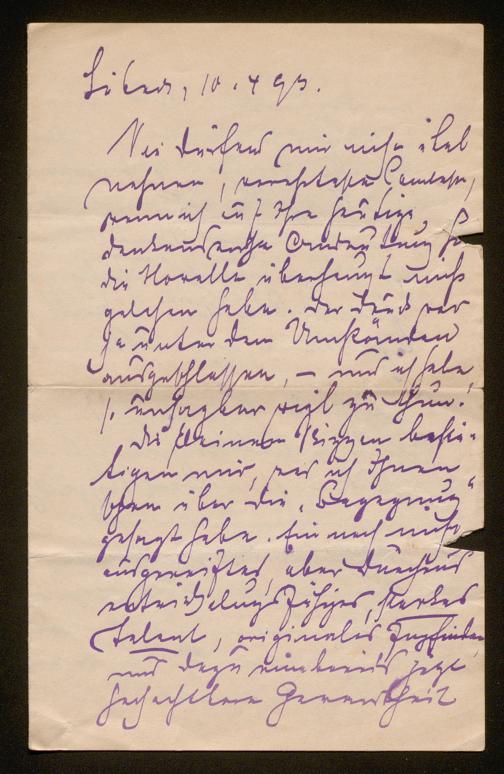 10. 4 93.
Sie dürfen mir nicht übel
nehmen, verehrteste Comtesse,
wenn ich auf Ihre heutige
dankenswerthe Andeutung
die Novelle überhaupt nicht
gelesen habe. Der Druck war
ja unter den Umständen
ausgeschlossen, – und ich habe
so unsagbar viel zu thun.
Die kleinen Skizzen bestä-
tigen mir, was ich Ihnen
schon über die „Begegnung"
gesagt habe. Ein noch nicht
ausgereiftes, aber durchaus
entwicklungsfähiges, starkes
Talent, originales Empfinden
und dazu eine bereits jetzt
Gewandtheit